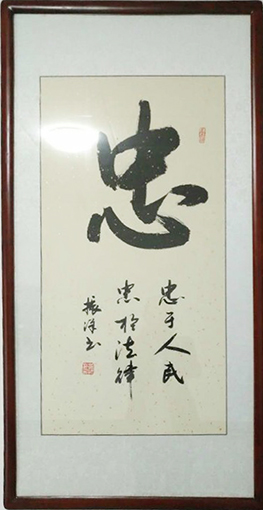 忠
忠于人民
忠於法律
振洋书